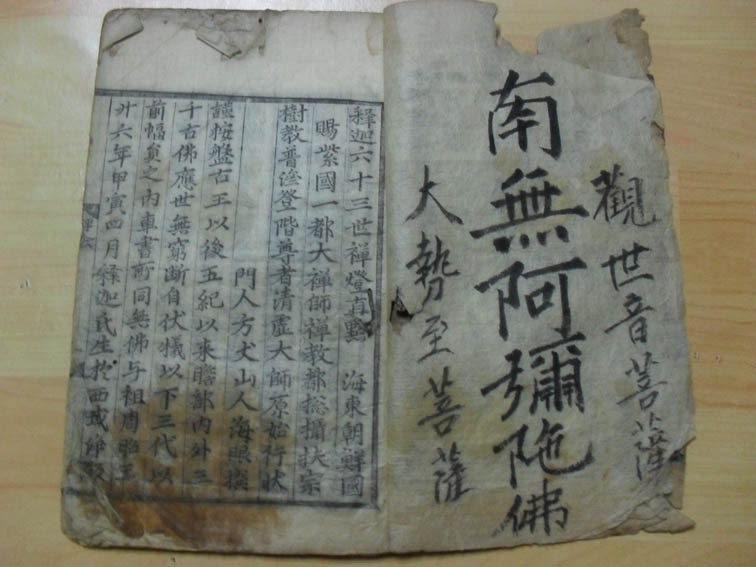 觀世音菩薩
南無阿彌陀佛
大勢至菩薩
釋迦六十三世禪燈直點 海東朝鮮國
賜紫國一都大禪師禪教都揔攝扶宗
樹教普濟登階尊者清虛大師原始行狀
門人方丈山人海眼撰
謹按盤古王以後五紀以來瞻部內外三
千古佛應世無窮斷自伏犧以下三代以
前幅員之內車書所同無佛與祖周昭王
廿六年甲寅四月釋迦氏生於西域